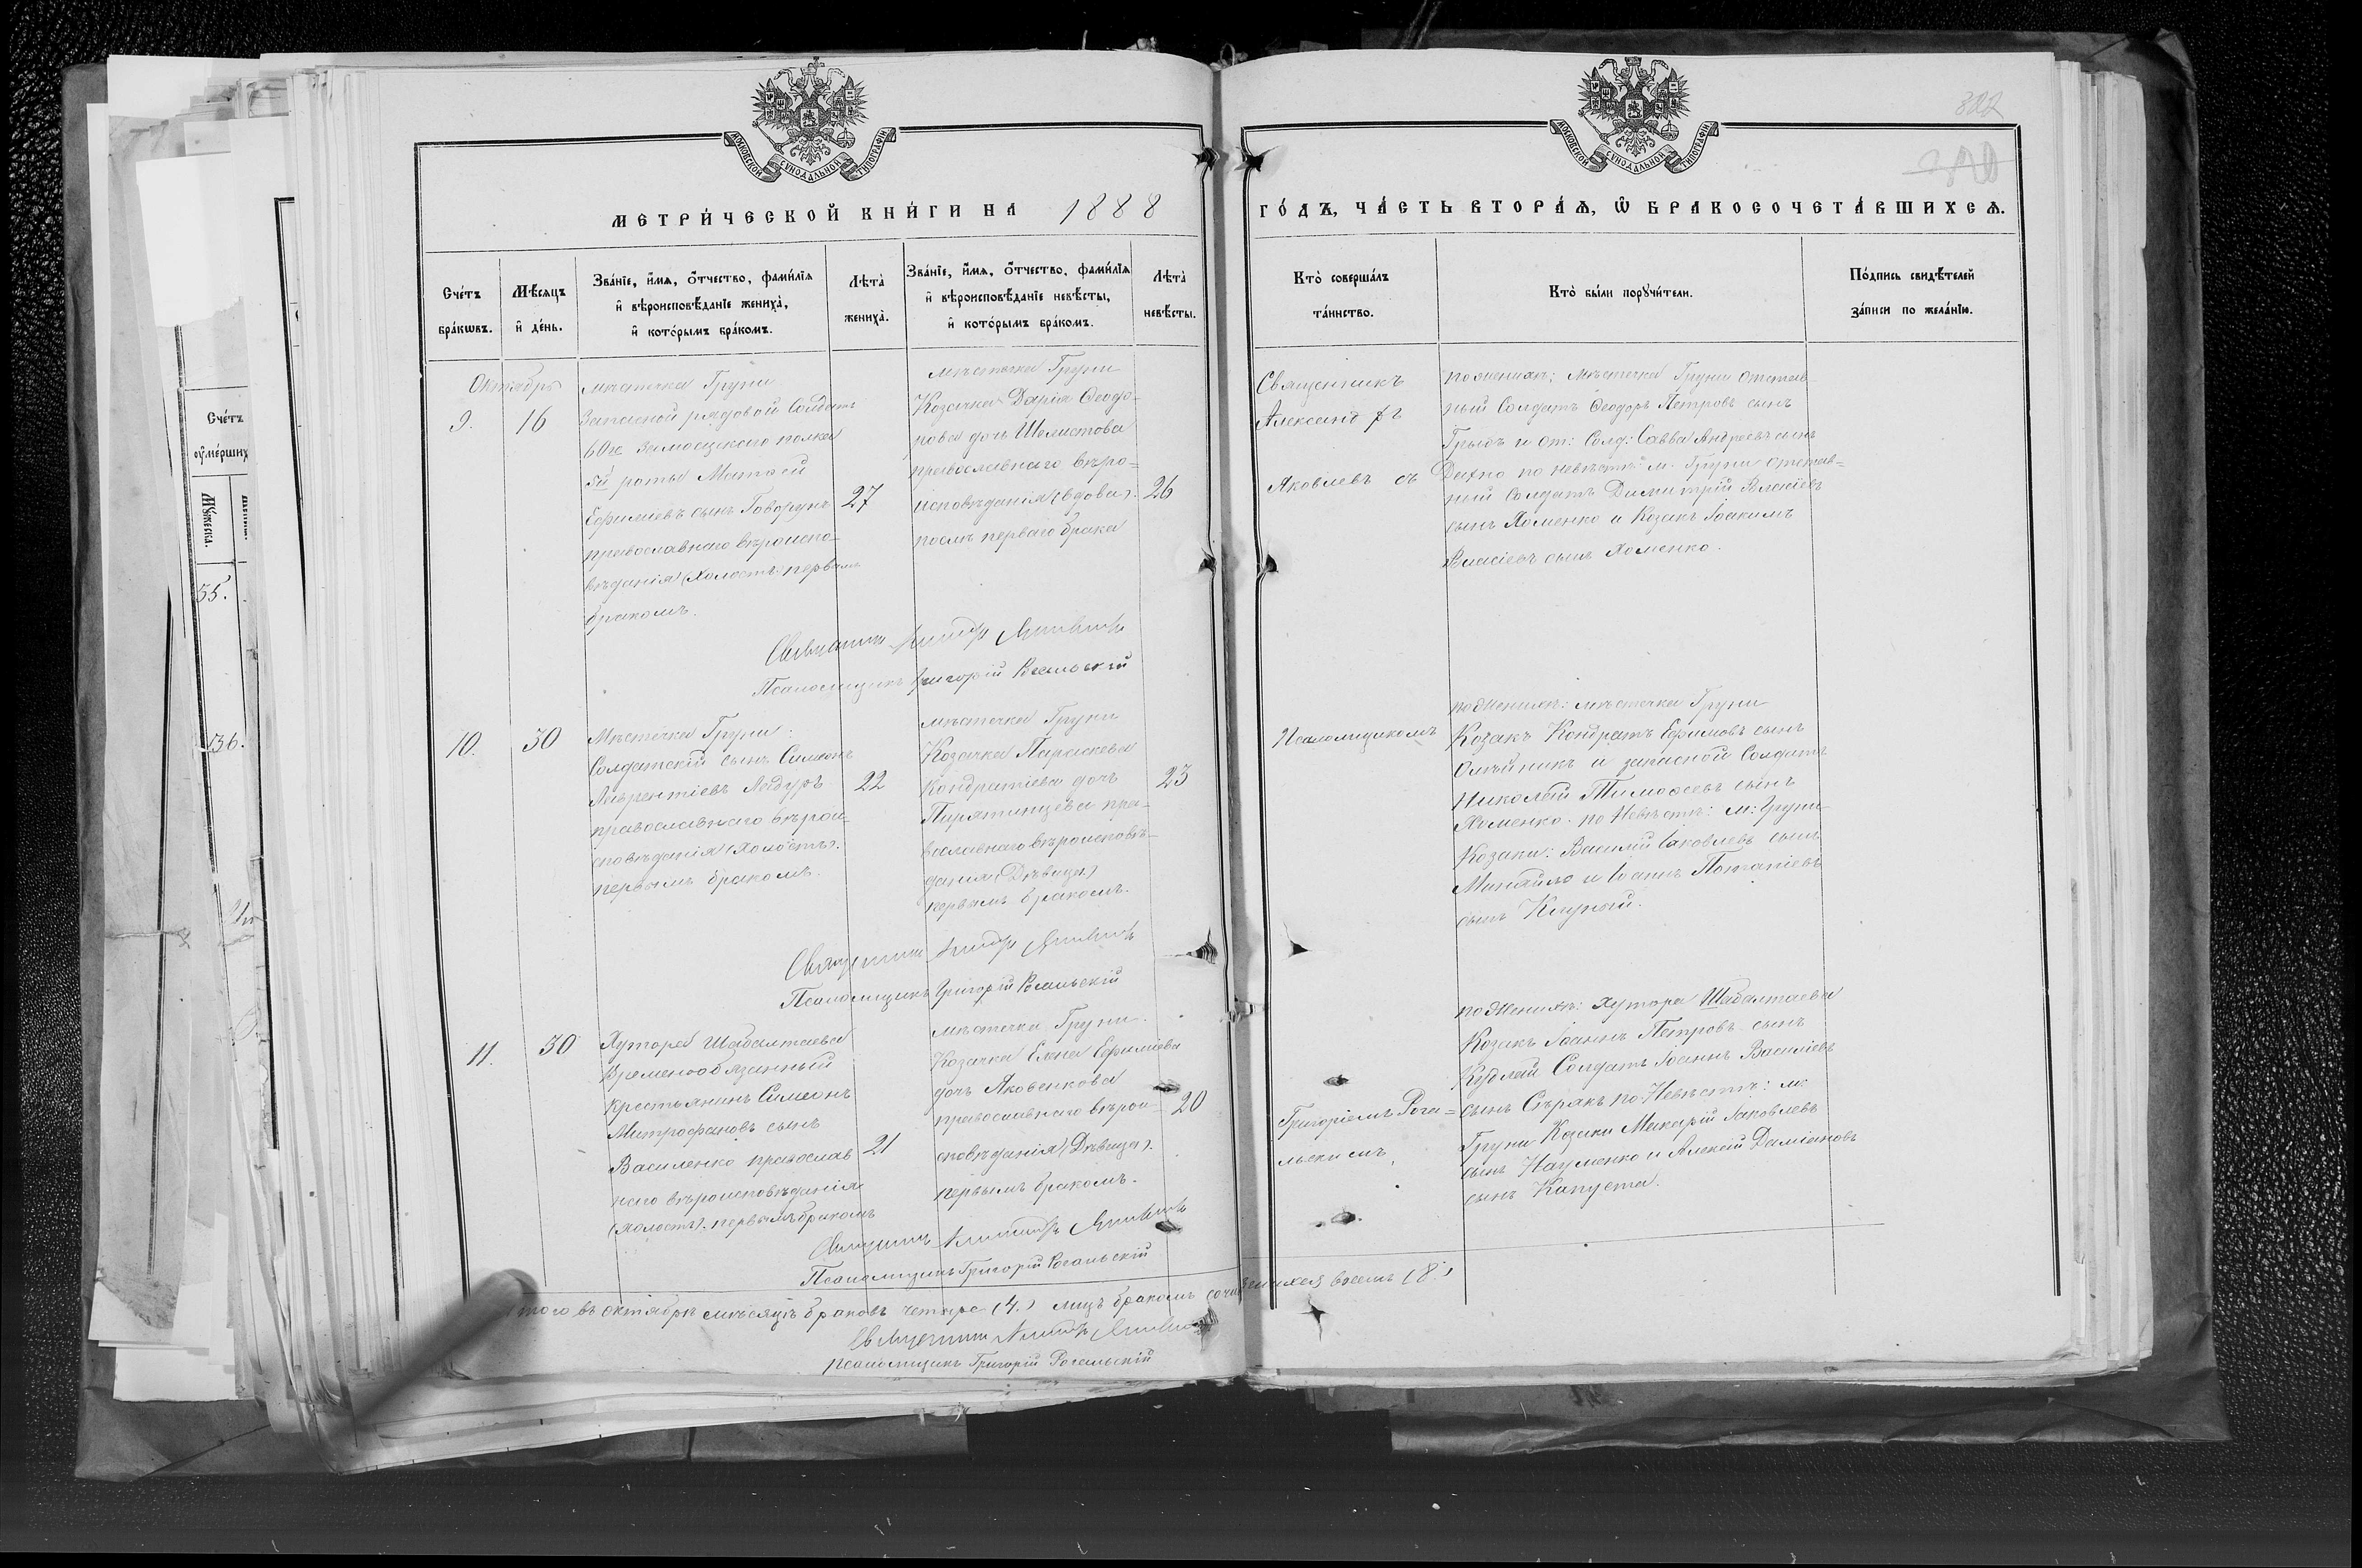 МОСКОВСКОЙ СѴНОДАЛЬНОЙ ТИПОГРАФІИ
МОСКОВСКОЙ СѴНОДАЛЬНОЙ ТИПОГРАФІИ
322
МЕТРИ́ЧЕСКОЙ КНИ́ГИ НА 1888
ГО́ДЪ, ЧА́СТЬ ВТОРА́Ѧ, Ѽ БРАКОСОЧЕТА́ВШИХСѦ.
Сче́тъ
бра́кѡвъ.
Мѣ́сяцъ
и҆ де́нь.
Зва́нїе, и҆́мѧ, о҆́тчество, фами́лїѧ
и҆ вѣроисповѣ́данїе жениха̀,
и҆ кото́рымъ бра́комъ.
Лѣта̀
жениха̀.
Зва́нїе, и҆́мѧ, о҆́тчество, фами́лїѧ
и҆ вѣроисповѣ́данїе невѣ́сты,
и҆ кото́рымъ бра́комъ.
Лѣта̀
невѣ́сты.
Кто̀ соверша́лъ
та́инство.
Кто̀ бы́ли порꙋчи́тели.
По́дпись свидѣ́телей
за́писи по жела́нїю.
Октябрь
9.
16
мѣстечка Груни
Запасной рядовой Солдатъ
60го Замосцкаго полка
5й роты Матѳей
Ефиміевъ сынъ Говорунъ
православнаго вѣроиспо-
вѣданія (Холостъ) первымъ
бракомъ.
27
мѣстечка Груни
Козачка Дарія Ѳеодо-
рова дочь Шелистова
православнаго вѣро=
исповѣданія (вдова).
послѣ перваго брака
26
Священникъ
Александръ
Яковлевъ съ
по женихѣ: мѣстечка Груни отстав-
ный Солдатъ Ѳеодоръ Петровъ сынъ
и от: Солд: Савва Андреевъ сынъ
по невѣстѣ: м. Груни отстав=
ный Солдатъ Димитрій Алексіевъ
сынъ Хоменко и Козакъ Іоакимъ
Власіевъ сынъ Хоменко.
Священникъ
Псаломщикъ Григорій Рогальскій
10.
30
Мѣстечка Груни:
Солдатскій сынъ Симеонъ
Лаврентіевъ
православнаго вѣрои-
сповѣданія (Холостъ).
первымъ бракомъ.
22
мѣстечка Груни
Козачка Параскева
Кондратіева дочь
Пирятинцева пра-
вославнаго вѣроисповѣ-
данія (Дѣвица)
первымъ бракомъ.
23
Псаломщикомъ
по Женихѣ: мѣстечка Груни
Козакъ Кондратъ Ефимовъ сынъ
Олѣйникъ и запасной Солдатъ
Николай Тимоѳеевъ сынъ
Хоменко. по Невѣстѣ: м: Груни
Козаки: Василій Іаковлевъ сынъ
Михайло и Іоаннъ Потапіевъ
сынъ
Священникъ
Псаломщикъ Григорій Рогальскій
11.
30
Хутора Шабалтаева
Временообязанный
крестьянинъ Симеонъ
Митрофановъ сынъ
Василенко православ
наго вѣроисповѣданія
(холостъ). первымъ бракомъ
21
мѣстечка Груни.
Козачка Елена Ефиміева
дочь Яковенкова
православнаго вѣрои-
сповѣданія (Дѣвица).
первымъ бракомъ.
20
Григоріемъ Рога=
льскимъ
по Женихѣ: Хутора Шабалтаева
Козакъ Іоаннъ Петровъ сынъ
Кудлай Солдатъ Іоаннъ Василіевъ
сынъ Сѣрякъ по Невѣстѣ: м:
Груни Козаки Макарій Іаковлевъ
сынъ Науменко и Алексій Даміановъ
сынъ Капуста.
Священникъ
Псаломщикъ Григорій Рогальскій
Итого въ октябрѣ мѣсяцѣ браковъ четыре (4.) лицъ бракомъ сочетавшихся восемь (8.)
Священникъ
псаломщикъ Григорій Рогальскій
Сче́тъ
Мꙋ́жеска.
35.
136.